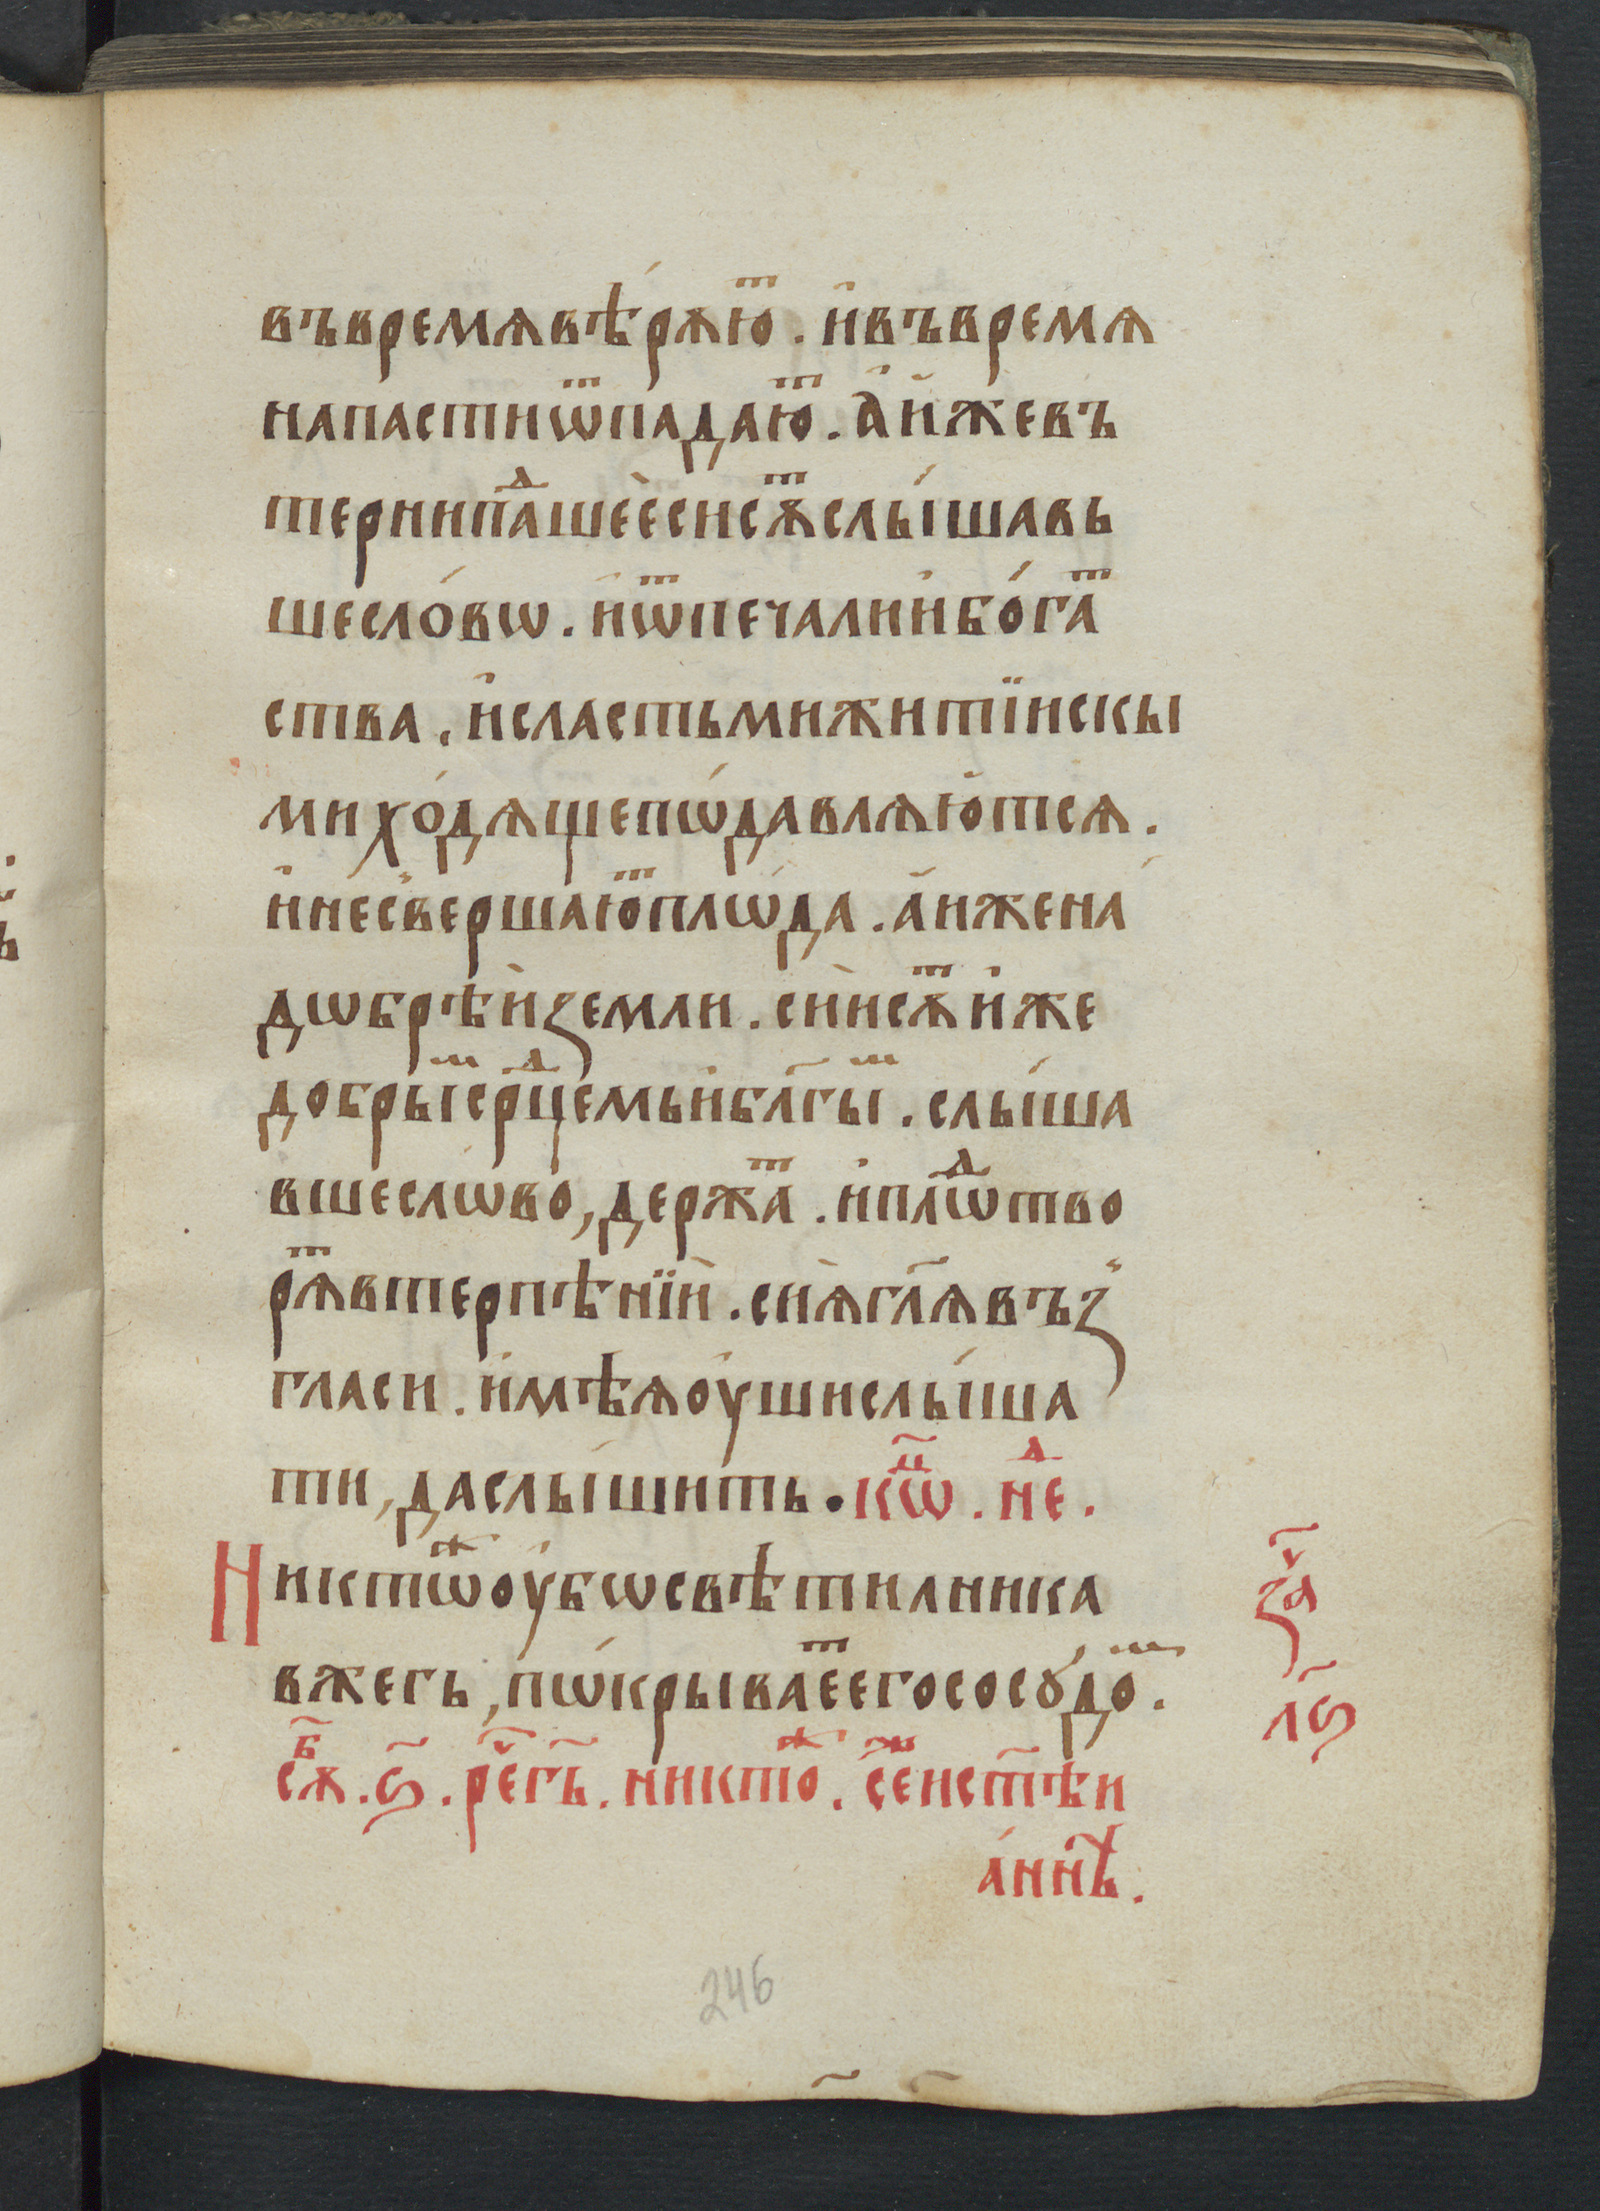 въвремѧвѣ́рѧю҆ⷮ . и҆въвре́мѧ
напастиѿпадаю҆ⷮ . а҆и҆жевъ
терниипⷣашеѐсисѧ́ⷮслы́шавь
шесло́вѡ . и҆ѿпечалии҆бо́гаⷮ
ства . и҆сластьмижитїискы
михо́дѧщепѡ́давлѧю҆тсѧ .
и҆не́свершаю҆ⷮплѡ́да . а҆ижена́
дѡбрѣѝземли . сиѝсѧⷮ и҆же
добрыⷨсрⷣцемьи҆бл҃гыⷨ . слы́ша
вшеслѡво , держаⷮ . и҆плѡⷣтво
рѧⷮвтерпѣнїѝ . сиѧ̀гл҃ѧвъз
гласи . и҆мѣѧоу҆шислы́ша
ти , даслы́шить . кѡⷩ҇ . неⷣ .
Никтѡⷤоу҆бѡсвѣтилника
вжегъ , пѡ́крываеⷮегососу́доⷨ .
сѫⷠ҇ . ѕ҃ . рⷱ҇егь҃ . никтоⷤ . сеⷤ҇ист҃ѣи
а́ннѣ .
заⷱ҇
лѕ҃
246